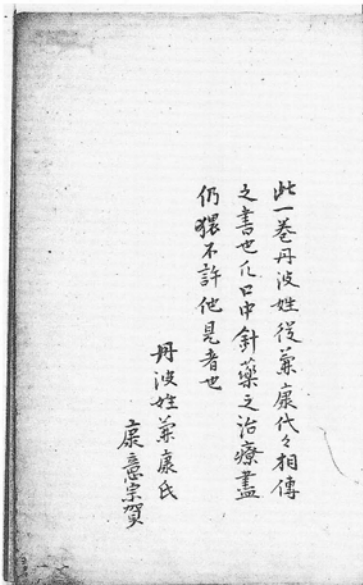 此一巻丹波姓従兼康代々相傳
之書也凡口中針薬之治療盡
仍猥不許他見者也
丹波姓兼康氏
康意宗賀